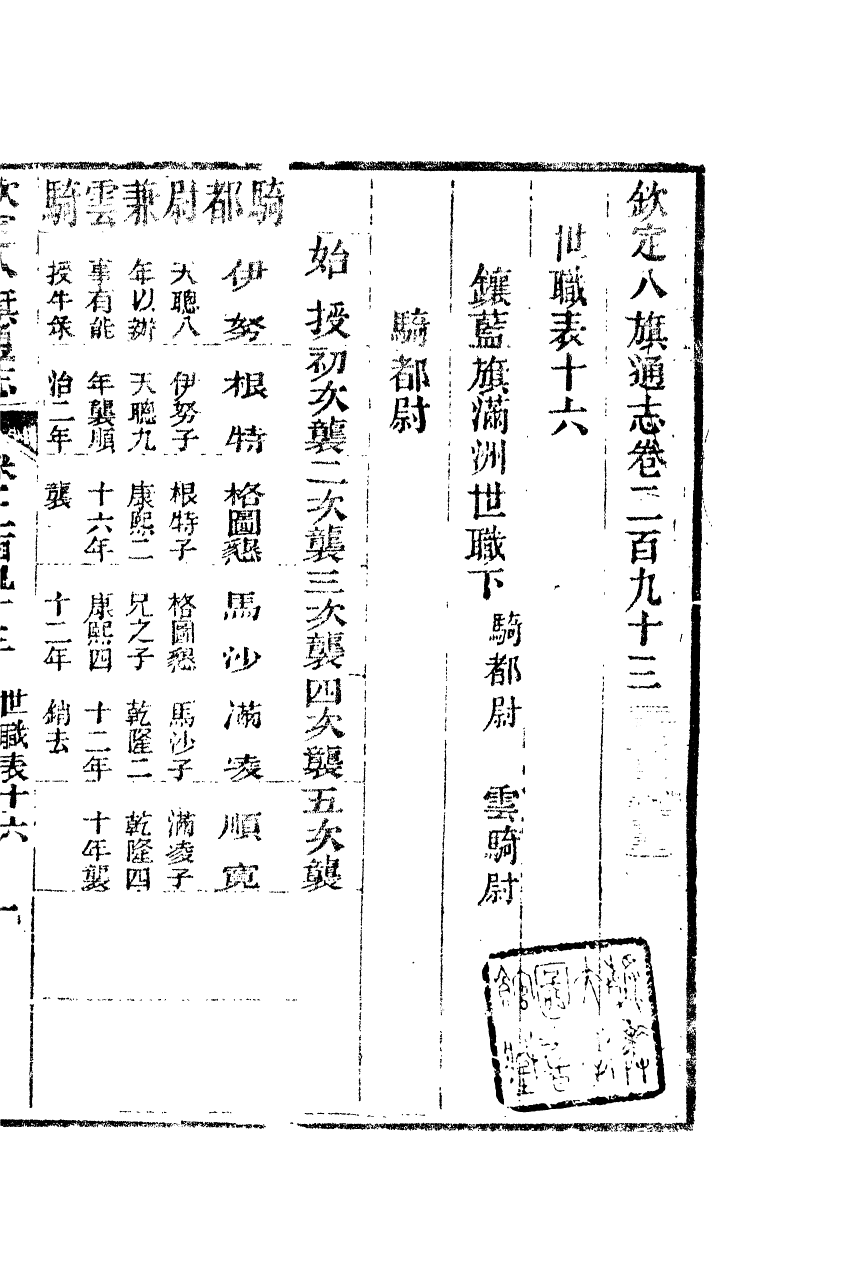 欽定八旗通志卷二百九十三
世職表十六
鑲藍旗滿洲世職下 騎都尉 雲騎尉
騎都尉
始授 初次襲 二次襲 三次襲 四次襲 五次襲
騎都尉兼雲騎
伊努 根特 格圖懇 馬沙 滿凌 順寛
天聰八 伊努子 根特子 格圖懇 馬沙子 滿凌子
年以辦 天聰九 康熙二 兄之子 乾隆二 乾隆四
事有能 年襲順 十六年 康熙四 十二年 十年襲
授牛彔 治二年 襲 十二年 銷去
世職表十六 一